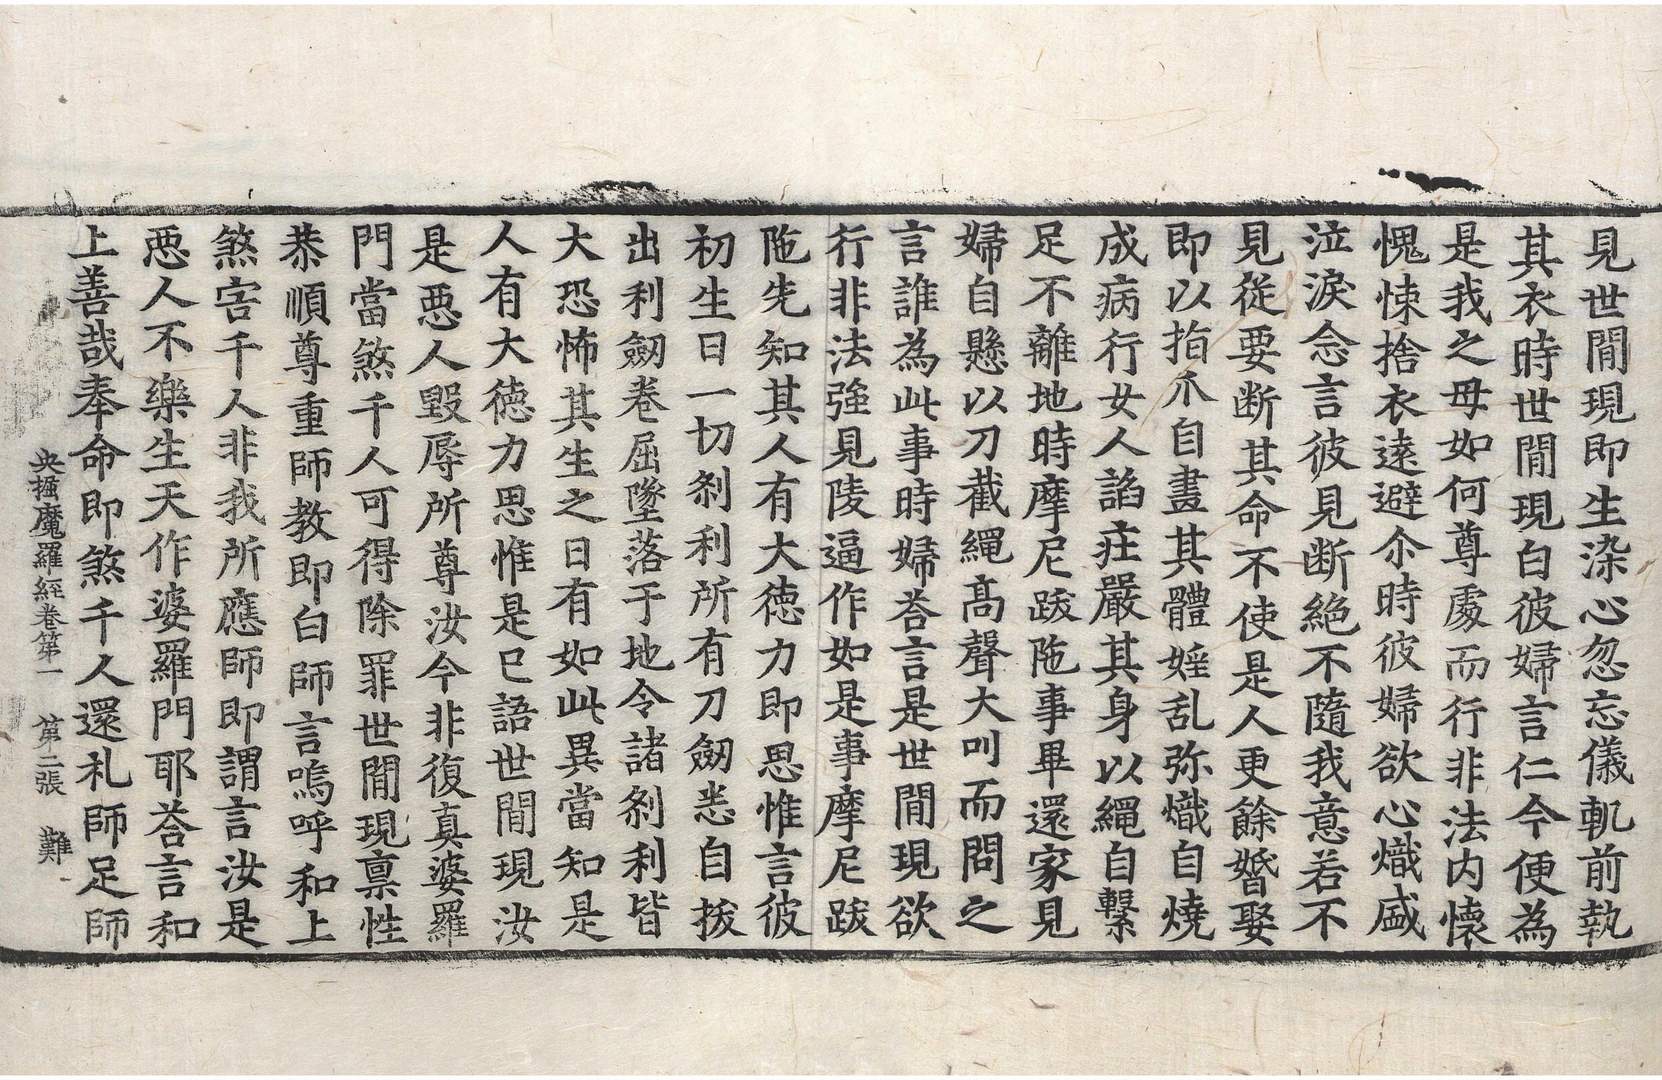 見世間現即生染心忽忘儀軌前執
其衣時世間現白彼婦言仁今便為
是我之母如何尊處而行非法内懷
愧悚捨衣遠避尒時彼婦欲心熾盛
泣淚念言彼見断絶不隨我意若不
見從要断其命不使是人更餘婚娶
即以指爪自畫其體婬乱弥熾自燒
成病行女人諂莊嚴其身以繩自繫
足不離地時摩尼跋陁事畢還家見
婦自懸以刀截繩髙聲大叫而問之
言誰為此事時婦荅言是世間現欲
行非法強見陵逼作如是事摩尼跋
陁先知其人有大徳力即思惟言彼
初生日一切刹利所有刀劒悉自拔
出利劒卷屈墜落于地令諸刹利皆
大恐怖其生之日有如此異當知是
人有大徳力思惟是已語世間現汝
是惡人毀辱所尊汝今非復真婆羅
門當煞千人可得除罪世間現稟性
恭順尊重師教即白師言嗚呼和上
煞害千人非我所應師即謂言汝是
惡人不樂生天作婆羅門耶荅言和
上善哉奉命即煞千人還礼師足師
央掘魔羅經卷第一　第二張　難